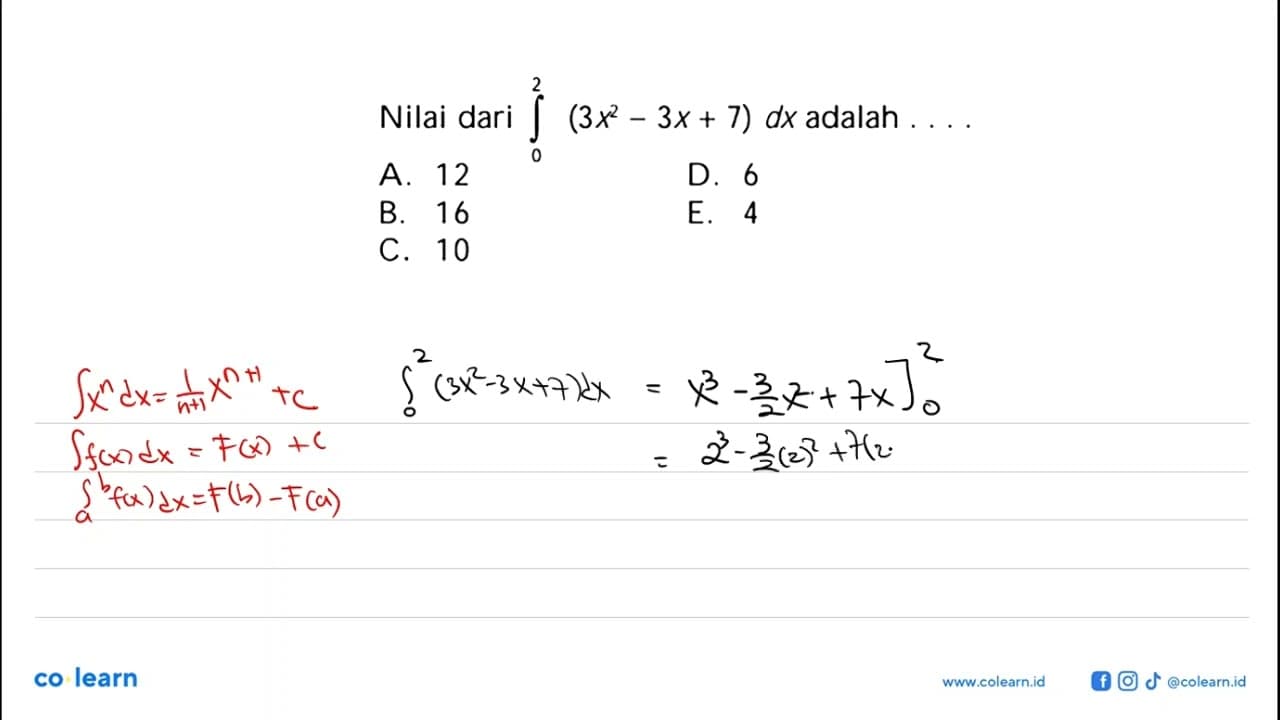 Nilai dari ∫₀² (3x² – 3x + 7) dx adalah . . . .
A. 12 D. 6
B. 16 E. 4
C. 10
∫xⁿdx = 1/(n+1) xⁿ⁺¹ + C
∫f(x)dx = F(x) + C
∫ₐᵇ f(x)dx = F(b) - F(a)
∫₀² (3x²-3x+7)dx = x³ - 3/2 x² + 7x]₀²
= 2³ - 3/2 (2)² + 7(2
co learn
www.colearn.id @colearn.id